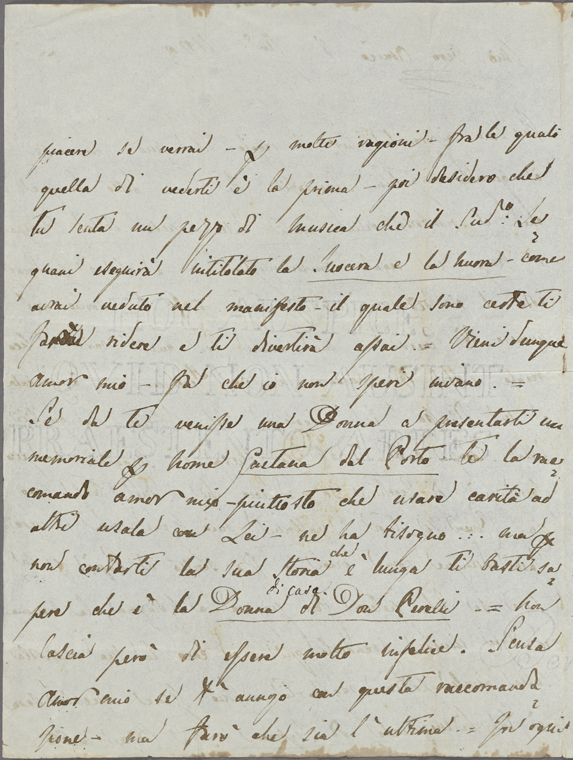 piacere se verrai - p molte ragioni - fra le quali
quella di vederti è la prima - poi desidero che
tu senta un pezzo di musica che il Sud.º Le
guani eseguirà intitolato la Suocera e la nuora - come
avrai veduto nel manifesto - il quale sono certo ti
farà ridere e ti divertirà assai = Vieni dunque
amor mio - fà che io non speri invano. =
Se da te venisse una Donna a presentarti un
memoriale p nome Gaetana del Porto te la rac
comando amor mio - piuttosto che usare carità ad
altri usala con Lei - ne ha bisogno ... ma p
non contarti la sua storia che è lunga ti basti sa
pere che è la Donna di casa di Don - = non
lascia però di essere molto infelice. Scusa
amor mio se t'annojo con questa raccomanda
zione - ma farò che sia l'ultima = fin ogni